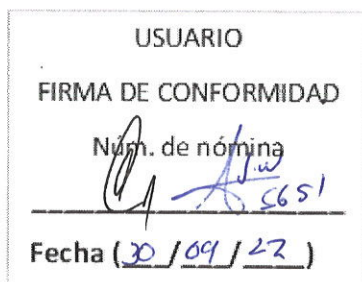 USUARIO
FIRMA DE CONFORMIDAD
Núm. de nómina
5651
Fecha (30 / 09 / 22 )